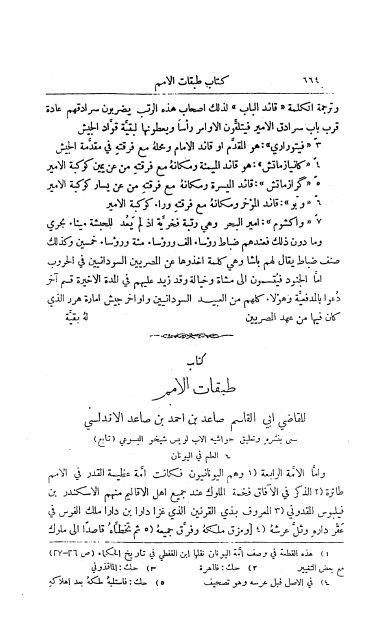 ٦٦٤ كتاب طبقات الامم
وترجمة الكلمة « قائد الباب » لذلك اصحاب هذه الرتب يضربون سرادقهم عادة
قرب باب سرادق الامير فيتلقَّون الاوامر رأساً ويعطونها لبقيَّة قوَّاد الجيش
٣ً «فيتوراري»: هو المقدَّم او قائد الامام ومحلهُ مع فرقتهِ في مقدَّمة الجيش
٤ً «كانيازماتش»: هو قائد الميمنة ومكانهُ مع فرقتهِ من عن يمين كوكبة الامير
٥ً «گرازماتش»: قائد الميسرة ومكانهُ مع فرقتهِ من عن يسار كوكبة الامير
٦ً «وبو»: قائد المؤخر ومكانهُ مع فرقتهِ وراء كوكبة الامير
٧ً «واكشوم»: امير البحر وهي رتبة فخريَّة اذ لم يَعُد للحبشة ميناء بحري
وما دون ذلك فعندهم ضباط رؤساء الف ورؤساء مئة ورؤساء خمسين وكذلك
صنف ضباط يقال لهم باشا وهي كلمة اخذوها عن المصريين السودانيين في الحروب
امَّا الجنود فيقسمون الى مشاة وخيالة وقد زيد عليهم في المدة الاخيرة قسم آخر
دُعوا بالمدفعيَّة وهؤلاء كلهم من العبيد السودانيين واواخر جيش امارة هرر الذي
كان فيها من عهد المصريين لهُ بقيَّة
كتاب
طبقات الامم
للقاضي ابي القاسم صاعد بن احمد بن صاعد الاندلسي
سعى بنشره وتعليق حواشيه الاب لويس شيخو اليسوعي (تابع)
٦ العلم في اليونان
وامَّا الامَّة الرابعة (١ وهم اليونانيون فكانت امَّة عظيمة القدر في الامم
طائرة (٢ الذكر في الآفاق فخمة الملوك عند جميع اهل الاقاليم منهم الاسكندر بن
فيلبوس المقدوني (٣ المعروف بذي القرنين الذي غزا دارا بن دارا ملك الفرس في
عقر داره وثلَّ عرشهُ (٤ ومزق ملكهُ وفرَّق جميعهُ (٥ ثم تخطَّاهُ قاصدًا الى ملوك
١) هذه القطعة في وصف امَّة اليونان نقلها ابن القفطي في تاريخ الحكماء (ص ٢٦-٢٧)
مع بعض التغيير ٢) حك: ظاهرة ٣) حك: الماقذوني
٤) في الاصل قبل عرسه وهو تصحيف ٥) حك: فاستلبهُ ملكهُ بعد اهلاكهِ